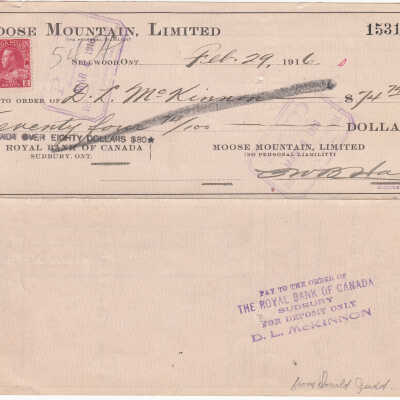 OOSE MOUNTAIN, LIMITED
(NO PERSONAL LIABILITY)
1531
SELLWOOD ONT. Feb. 29, 1916
TO ORDER OF D. L. McKinnon $74
eventy four /100 DOLLA
NOR OVER EIGHTY DOLLARS $80★
ROYAL BANK OF CANADA
SUDBURY, ONT.
MOOSE MOUNTAIN, LIMITED
(NO PERSONAL LIABILITY)
PAY TO THE ORDER OF
THE ROYAL BANK OF CANADA
SUDBURY
FOR DEPOSIT ONLY
D. L. McKINNON